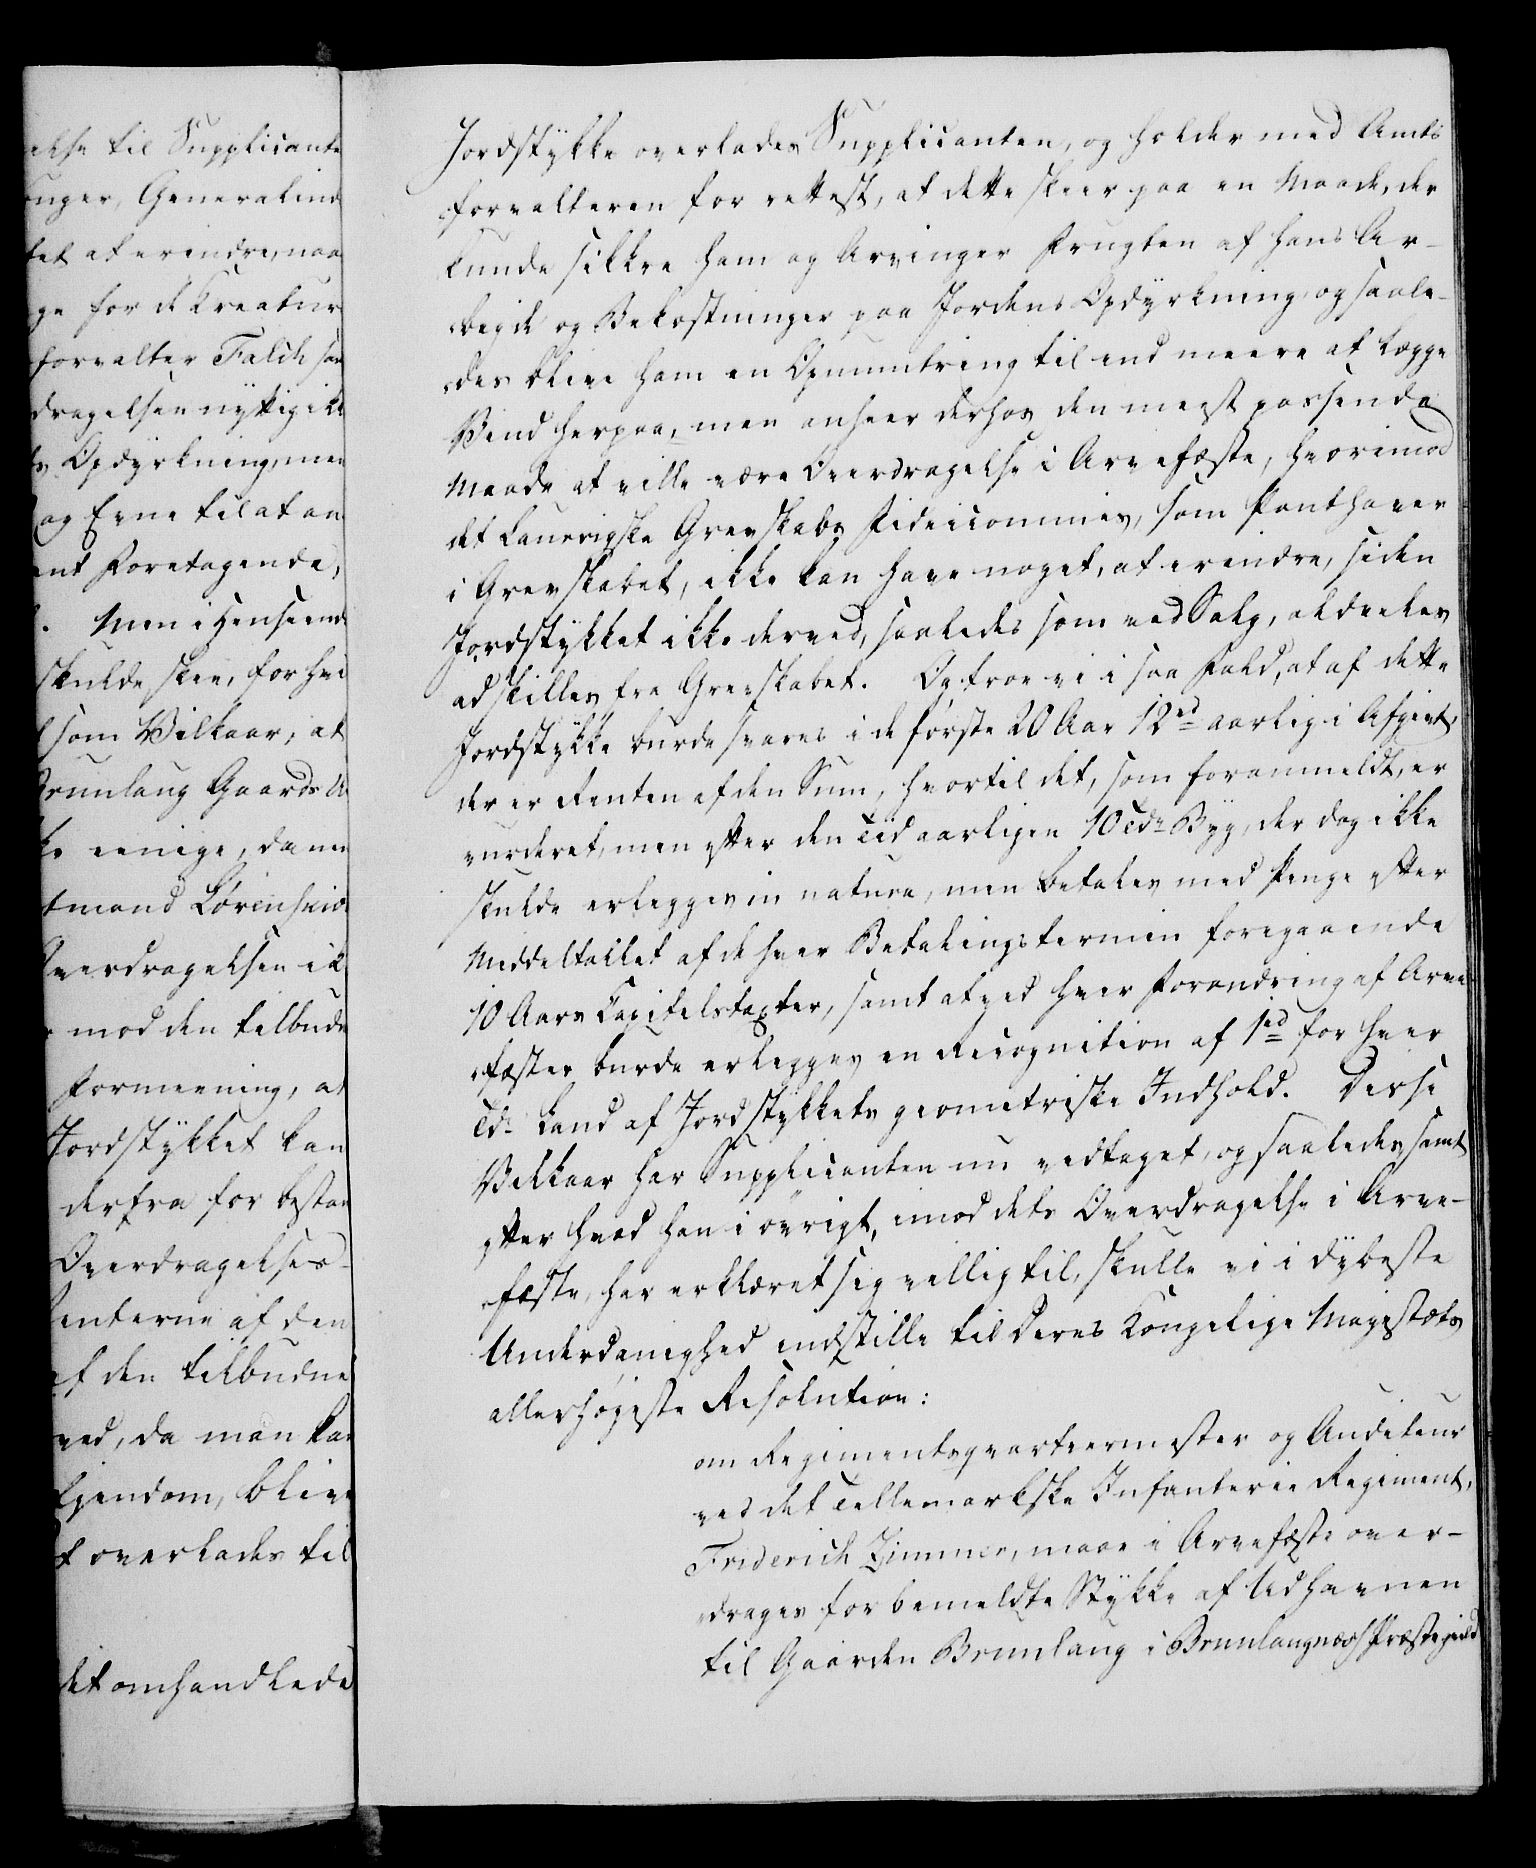 else til Supplicante
nger, Generalind
tet at erindre, naa
ge for de Kreatur
forvalter Falch saa
dragelsen nyttig ikk
ts Opdyrkning, men
og Evne til at an
ent Foretagende,
. Men i Henseende
skulde skee, for hvi
som Vilkaar, at
Brunlaug Gaards U
ke eenige, da me
tmand Lövenskio
Overdragelsen ik
mod den tilbudn
Formeening, at
Jordstykket kan
derfra for bestan
Overdragelses-
Renterne af den
af den tilbudne
ved, da man ka
Ejendom, blive
t overlades til
det omhandlede
Jordstykke overlades Supplicanten, og holder med Amts
forvalteren for rettest, at dette skeer paa en Maade, der
kunde sikkre ham og Arvinger Frugten af hans Ar-
beide og Bekostninger paa Jordens Opdyrkning, og saale-
des blive ham en Opmuntring til end meere at lægge
Vind herpaa, men anseer derhos den meest passende
Maade at ville være Overdragelse i Arvefæste, hvorimod
det Laurvigske Grevskabs Fideicommis, som Panthaver
i Grevskabet, ikke kan have noget, at erindre, siden
Jordstykket ikke derved, saaledes som ved Salg, aldeeles
adskilles fra Grevskabet. Og troe vi i saa Fald, at af dette
Jordstykke burde svares i de første 20 Aar 12 rd aarlig i Afgivt,
der er Renten af den Sum, hvortil det, som foranmeldt, er
vurderet, men efter den Tid aarligen 10 Tdr Byg, der dog ikke
skulde erlegges in natura, men betales med Penge efter
Middeltallet af de hver Betalingstermin foregaaende
10 Aars Capitelstaxter, samt at ved hver Forandring af Arve
fæster burde erlegges en Recognition af 1 rd for hver
Td. Land af Jordstykkets geometriske Indhold. Disse
Vilkaar har Supplicanten nu vedtaget, og saaledes samt
efter hvad han i øvrigt, imod dets Overdragelse i Arve-
fæste, har erklæret sig villig til, skulle vi i dybeste
Underdanighed indstille til Deres Kongelige Majestæts
allerhøjeste Resolution:
om Regimentsqvarteermester og Auditeur
ved det Tellemarkske Infanterie Regiment,
Friderich Zimmer, maae i Arvefæste over-
drages forbemeldte Stykke af Udhavnen
til Gaarden Brunlaug i Brunlaugnæs Præstegield